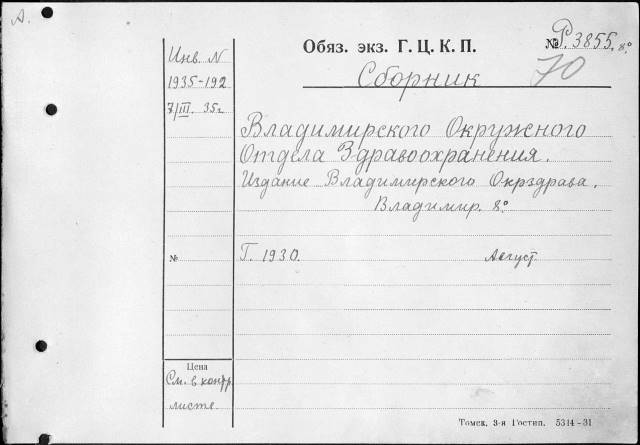 А.
Обяз. экз. Г. Ц. К. П. № Р. 3855. 8°
70
Сборник
Инв. N
1935-192
7/III. 35г.
Владимирского Окружного
Отдела Здравоохранения.
Издание Владимирского Окрздрава.
Владимир. 8°
№ Г. 1930. Август.
Цена
См. в контр.
листе.
Томск, 3-я Гостип. 5314-31